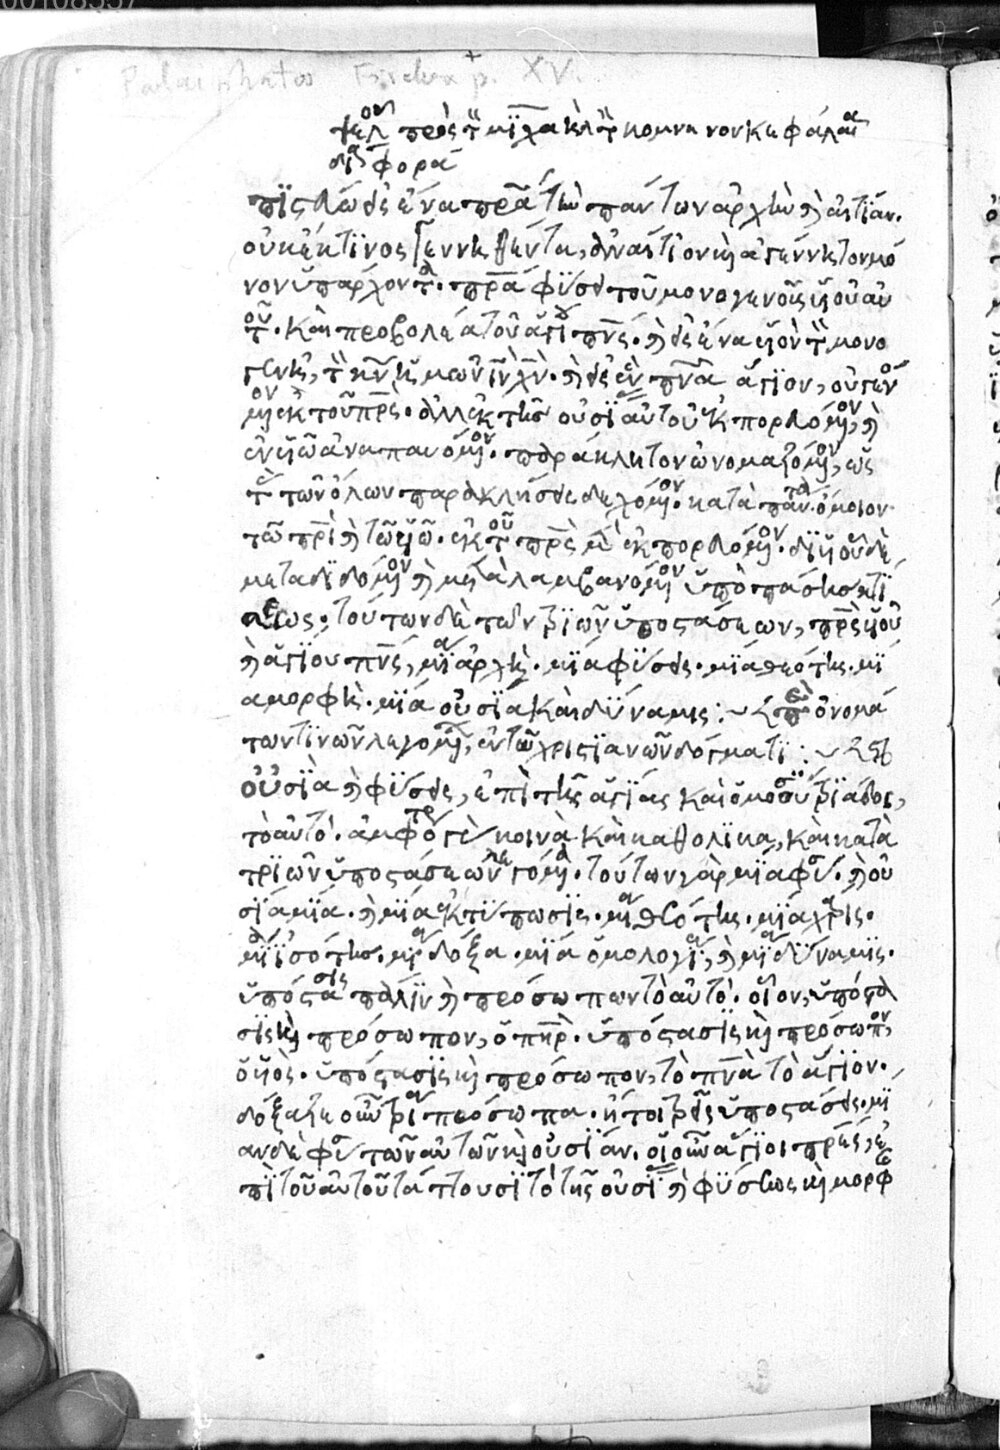 00108537
Palaephatus Fischer p. XV.
ψελ πρὸς τὸν μϊχαὴλ τὸν κομνηνον κεφάλαια
διάφορα
πϊστεύω εἰς ἕνα πρα τὴν πάντων ἀρχὴν καὶ αἰτίαν.
οὐκ ἔκ τϊνος γεννηθέντα, ἀναίτιον καὶ ἀγέννητον μό
νον ὑπάρχοντα. πρα φύσει τοῦ μονογενοῦς υἱοῦ αὐ
τοῦ. καὶ προβολέα τοῦ ἁγίου πνς. καὶ εἰς ἕνα υἱὸν τὸν μονο
γενῆ, τὸν κν ἡμῶν ιν χν. καὶ εἰς ἓν πνα ἅγιον, οὐ γεν
μεν ἐκ τοῦ πρς. ἀλλ' ἐκ τῆς οὐσίας αὐτοῦ ἐκπορευόμενον, καὶ
ἐν υἱῷ ἀναπαυόμενον. παράκλητον ὀνομαζόμενον, ὡς
τὰς τῶν ὅλων παρακλήσεις δεχόμενον. κατὰ πάντα ὅμοιον
τῶ πρὶ καὶ τῶ υἱῶ. ἐκ τοῦ πρς μὲν ἐκπορευόμενον. δι' υἱοῦ δὲ
μεταδϊδόμενον καὶ μεταλαμβανόμενον ὑπὸ πάσης κτί
σεως. τούτων δὲ τῶν τριῶν ὑποστάσεων, πρς υἱοῦ
καὶ ἁγίου πνς, μϊα ἀρχὴ. μϊα φύσις. μϊα θεότης. μϊ
α μορφὴ. μϊα οὐσϊα καὶ δύναμις: περὶ ὀνομά
των τϊνῶν λεγομένων, ἐν τῶ χριστϊανῶν δόγματι:
οὐσϊα καὶ φύσις, ἐπὶ τῆς ἁγίας καὶ ὁμοουσϊου τριάδος,
τὸ αὐτό. ἀμφότερα γὰρ κοινὰ καὶ καθολϊκα, καὶ κατὰ
τριῶν ὑποστάσεων λεγόμενα. τούτων γὰρ μϊα φύσις. καὶ οὐ
σία μϊα. καὶ μϊα ἐκτύπωσις. μϊα θεότης. μϊα χάρις.
μϊα ἰσότης. μϊα δόξα. μϊα ὁμολογία, καὶ μϊα δύναμϊς.
ὑπόστασις πάλϊν καὶ πρόσωπον τὸ αὐτό. οἷον, ὑπόστα
σϊς καὶ πρόσωπον, ὁ πηρ. ὑπόστασϊς καὶ πρόσωπον,
ὁ υἱὸς. ὑπόστασϊς καὶ πρόσωπον, τὸ πνα τὸ ἅγϊον.
πρόσωπα. ἤτοι τρεῖς ὑποστάσεις. μϊ
αν δὲ φύσιν τῶν αὐτῶν καὶ οὐσϊαν.
τῆς οὐσίας καὶ φύσεως καὶ μορφ